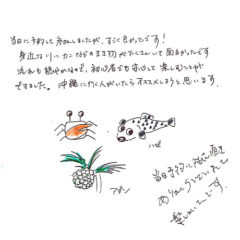 当日に予約して参加しましたが、すごく良かったです！
身近なリバーカヤックでも生き物がたくさんいて面白かったです
流れも穏やかなので、初心者でも安心して楽しむことが
できました。沖縄に行く人がいたらオススメしようと思います。
ハゼ
アダン
当日予約に
ありがとうございました
楽しかったです。